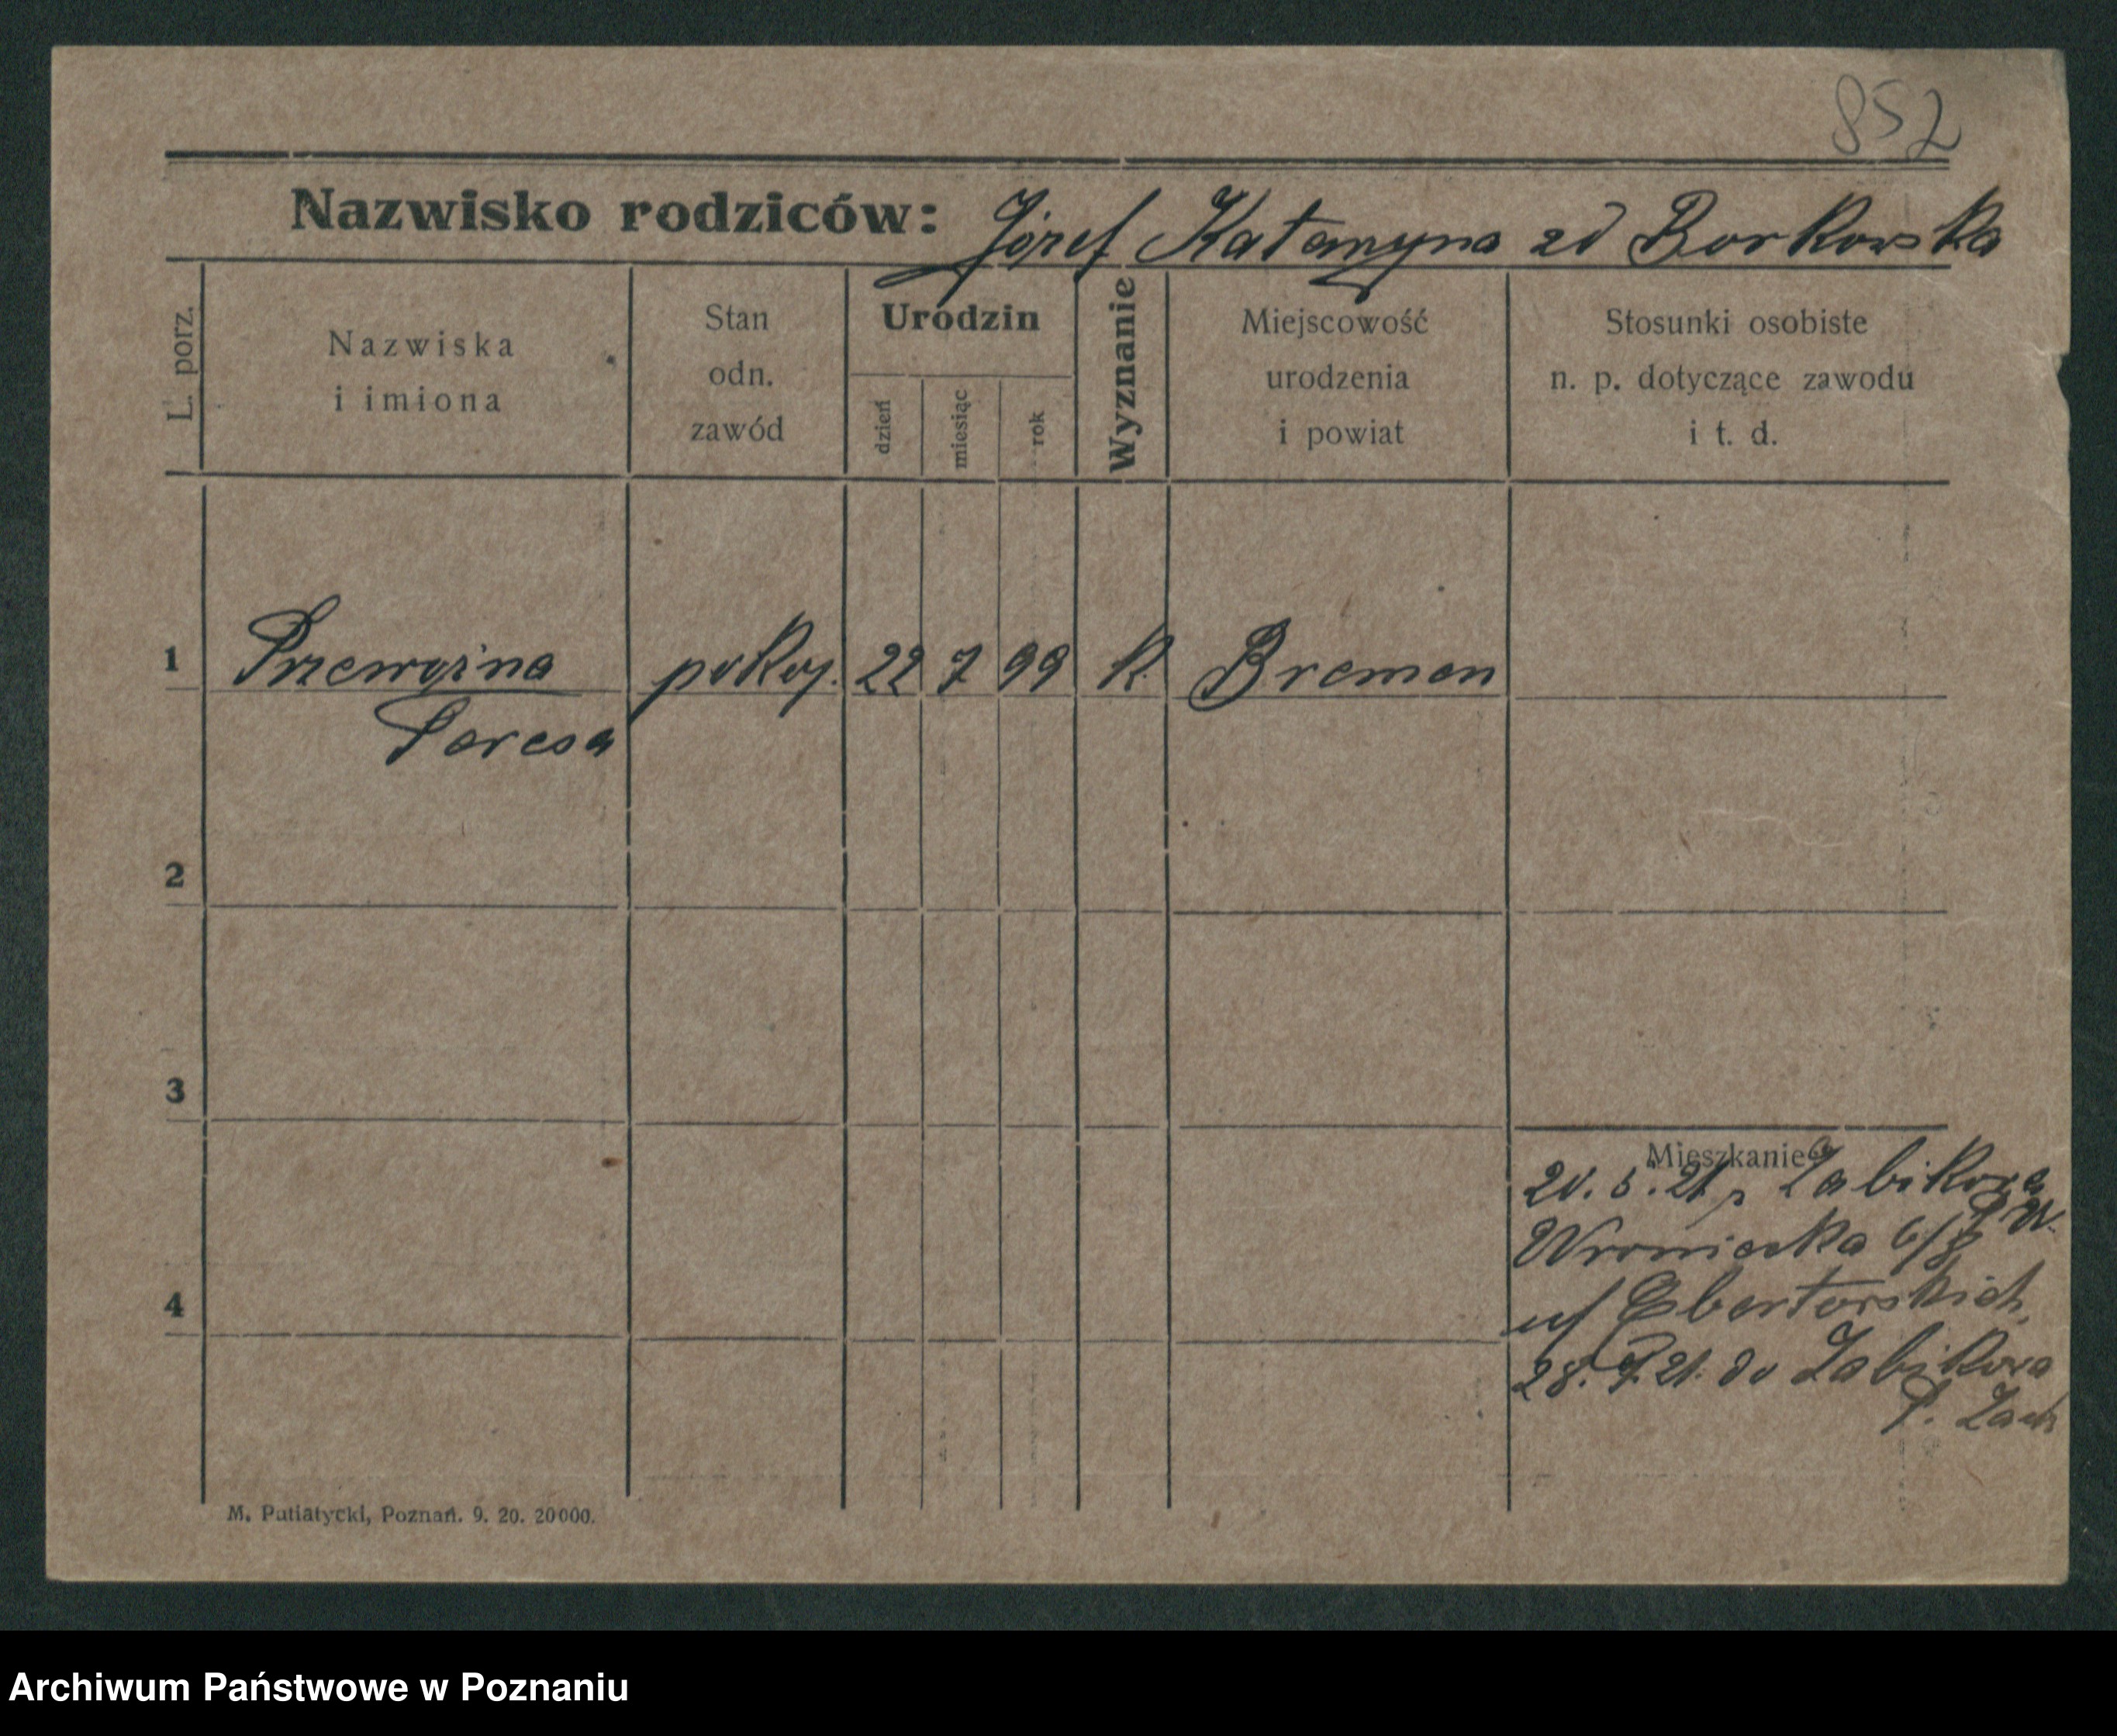 852
Nazwisko rodziców: Józef Katarzyna zd Borkowska
L. porz.
Nazwiska
i imiona
Stan
odn.
zawód
Urodzin
dzień
miesiąc
rok
Wyznanie
Miejscowość
urodzenia
i powiat
Stosunki osobiste
n. p. dotyczące zawodu
i t. d.
1 Przewoźna pokoj. 22 7 99 k. Bremen
Teresa
2
3
Mieszkanie
20. 5. 21 z Żabikowa
P. W.
Wroniecka 6/8
4
u/ Ebertowskich
28. 9. 21. do Żabikowa
P. Zach
M. Putiatycki, Poznań. 9. 20. 20000.
Archiwum Państwowe w Poznaniu